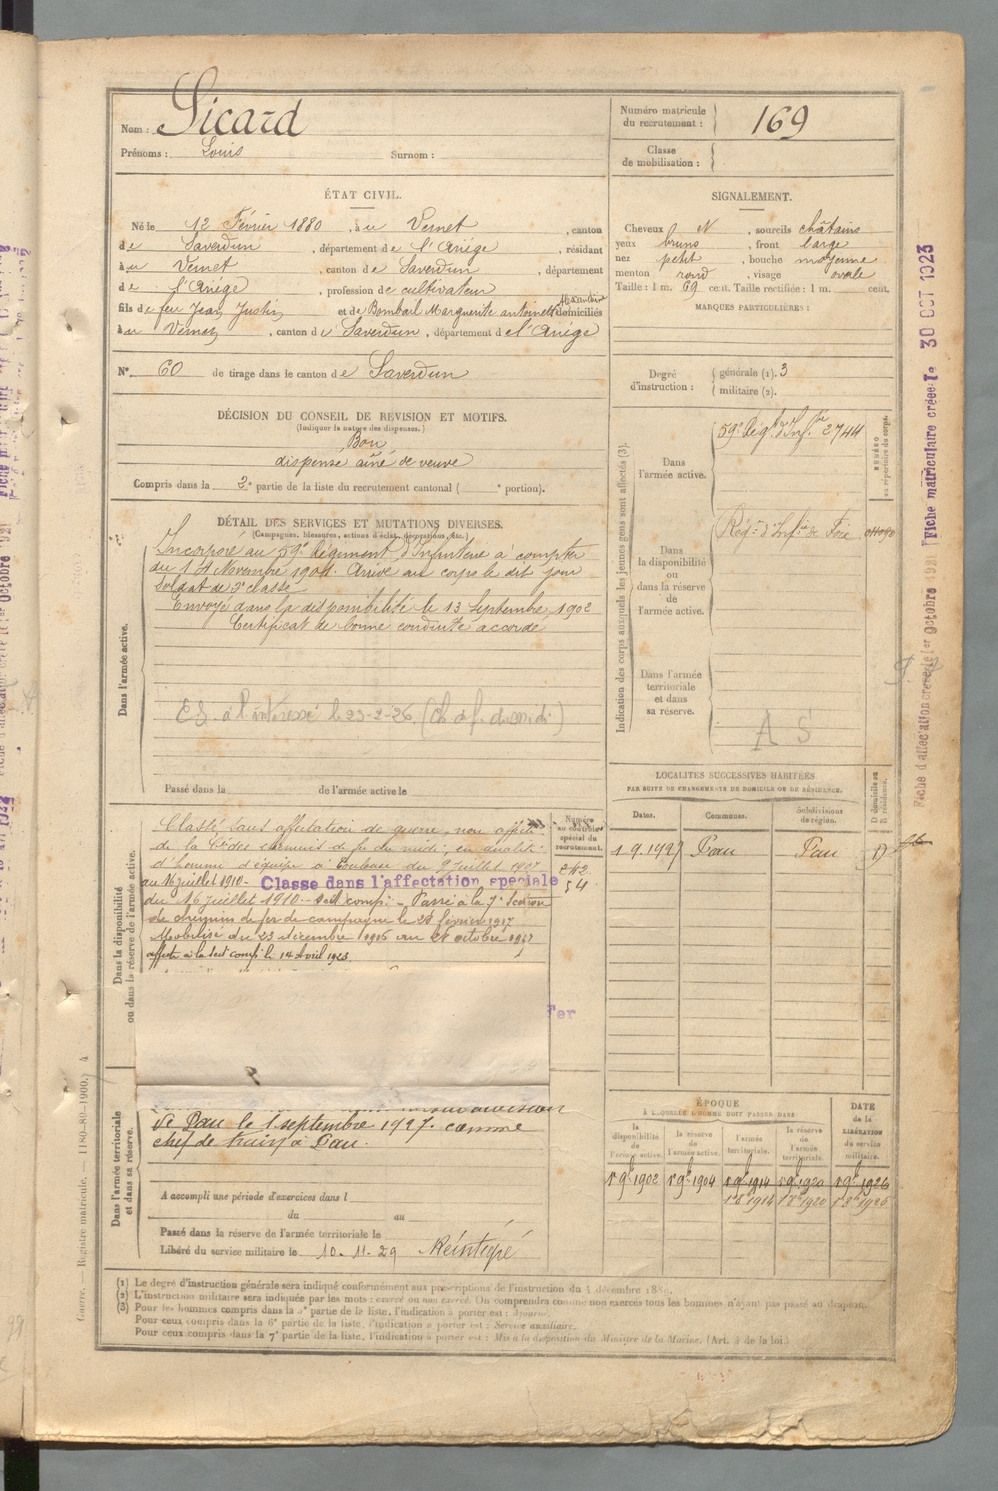 Nom : Sicard
Prénoms : Louis Surnom :
Numéro matricule du recrutement : 169
Classe de mobilisation :
ÉTAT CIVIL.
Né le 12 Février 1880, à u Vernet, canton
de Saverdun, département de l'Ariège, résidant
à u Vernet, canton de Saverdun, département
de l'Ariège, profession de cultivateur
fils de feu Jean Justin et de Bombail Marguerite antoinette Alexandrine domiciliés
à u Vernet, canton de Saverdun, département de l'Ariège
N° 60 de tirage dans le canton de Saverdun
SIGNALEMENT.
Cheveux N, sourcils châtains
yeux bruns, front large
nez petit, bouche moyenne
menton rond, visage ovale
Taille : 1 m. 69 cent. Taille rectifiée : 1 m. cent.
MARQUES PARTICULIÈRES :
Degré d'instruction : générale (1). 3
militaire (2).
DÉCISION DU CONSEIL DE RÉVISION ET MOTIFS.
(Indiquer la nature des dispenses.)
Bon
dispensé aîné de veuve
Compris dans la 2e partie de la liste du recrutement cantonal ( e portion).
DÉTAIL DES SERVICES ET MUTATIONS DIVERSES.
(Campagnes, blessures, actions d'éclat, décorations, etc.)
Dans l'armée active.
Incorporé au 59e Régiment d'Infanterie à compter
du 14 Novembre 1901. Arrivé au corps le dit jour
soldat de 2e classe
Envoyé dans la disponibilité le 13 Septembre 1902
Certificat de bonne conduite accordé
E.S. à l'intéressé le 23-2-26. (Ch. de f. du midi)
Passé dans la de l'armée active le
Indication des corps auxquels les jeunes gens sont affectés (3).
NUMÉRO au répertoire du corps.
Dans l'armée active.
59e Régt d'Inf.ie 2744
Dans la disponibilité ou dans la réserve de l'armée active.
Régt d'Inf.ie de Foix
Dans l'armée territoriale et dans sa réserve.
A S
LOCALITÉS SUCCESSIVES HABITÉES
PAR SUITE DE CHANGEMENTS DE DOMICILE OU DE RÉSIDENCE.
Dates. Communes. Subdivisions de région. D domicile ou R résidence.
1.9.1927 Pau Pau D
Dans la disponibilité ou dans la réserve de l'armée active.
Numéro au contrôle spécial du recrutement.
Classé sans affectation de guerre, non affecté
de la Cie des chemins de fer du midi, en qualité
d'homme d'équipe à Toulouse du 9 Juillet 1907
au 16 juillet 1910 - Classé dans l'affectation spéciale
du 16 juillet 1910 - Passé à la 7e Section
de chemin de fer de campagne le 28 février 1917
Mobilisé du 23 décembre 1916 au 21 octobre 1917
affecté à la le 14 Avril 1923.
Fer
Dans l'armée territoriale et dans sa réserve.
de Pau le 1 septembre 1927. comme
chef de train à Pau.
A accompli une période d'exercices dans l
du au
Passé dans la réserve de l'armée territoriale le
Libéré du service militaire le 10-11-29 Réintégré
ÉPOQUE
À LAQUELLE L'HOMME DOIT PASSER DANS
la disponibilité de l'armée active. la réserve de l'armée active. l'armée territoriale. la réserve de l'armée territoriale. DATE de la LIBÉRATION du service militaire.
1 9bre 1902 1 9bre 1904 1 9bre 1914 1 9bre 1920 1 9bre 1926
1 8bre 1914 1 8bre 1920 1 8bre 1926
(1) Le degré d'instruction générale sera indiqué conformément aux prescriptions de l'instruction du 4 décembre 1889.
(2) L'instruction militaire sera indiquée par les mots : exercé ou non exercé. On comprendra comme non exercés tous les hommes n'ayant pas passé au drapeau.
(3) Pour les hommes compris dans la 5e partie de la liste, l'indication à porter est : Ajourné.
Pour ceux compris dans la 6e partie de la liste, l'indication à porter est : Service auxiliaire.
Pour ceux compris dans la 7e partie de la liste, l'indication à porter est : Mis à la disposition du Ministre de la Marine. (Art. 4 de la loi.)
Registre matricule. — 1180-89-1900. 4
Fiche d'affectation créée le 1er Octobre 1921 Fiche matriculaire créée le 30 OCT 1923